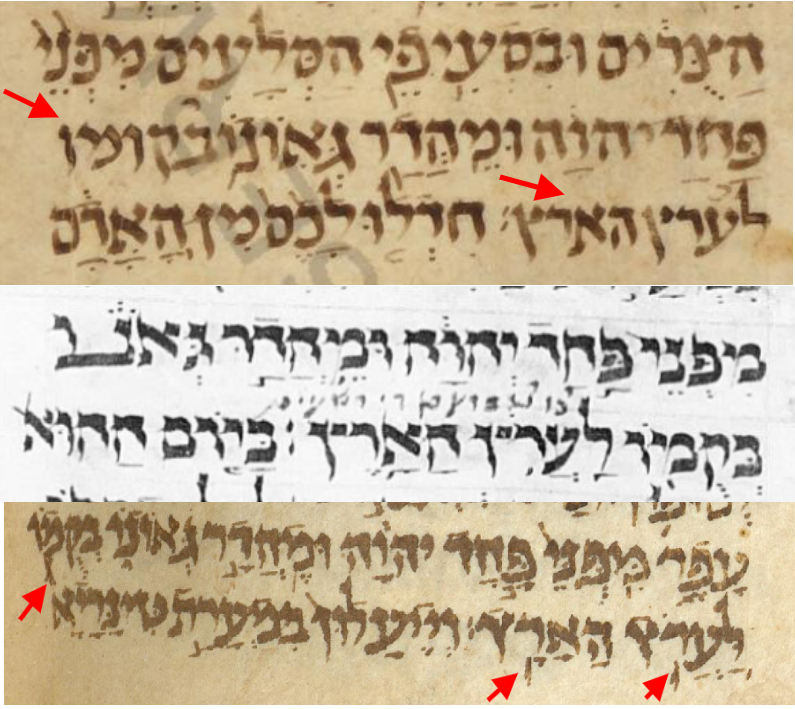 הצרים ובסעיפי הסלעים מפני
פחד יהוה ומהדר גאונו בקומו
לערץ הארץ׃ חדלו לכם מן האדם
מפני פחד יהוה ומהדר גאנו
בקמו לערץ הארץ׃ ביום ההוא
עפר מפני פחד יהוה ומהדר גאונו בקמו
לערץ הארץ׃ ויעלון במערת טינריא